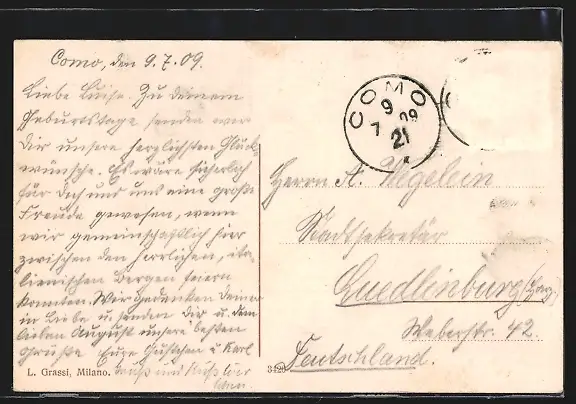 Como, den 9.7.09.
Liebe Luise. Zu deinem
Geburtstage senden wir
Dir unsere herzlichsten Glück-
wünsche. Es wäre sicherlich
für Dich und uns eine große
Freude gewesen, wenn
wir gemeinschaftlich hier
zwischen den herrlichen, ita-
lienischen Bergen feiern
konnten. Wir gedenken Deiner
in Liebe u. senden dir u. dem
lieben August unsere besten
Grüße Eure Gustchen u. Karl
Gruß und Kuß
L. Grassi, Milano.
3429
COMO
9
7 09
21
Herrn A. Wegelein
Stadtsekretär
Quedlinburg (Harz)
Weberstr. 42.
Deutschland.